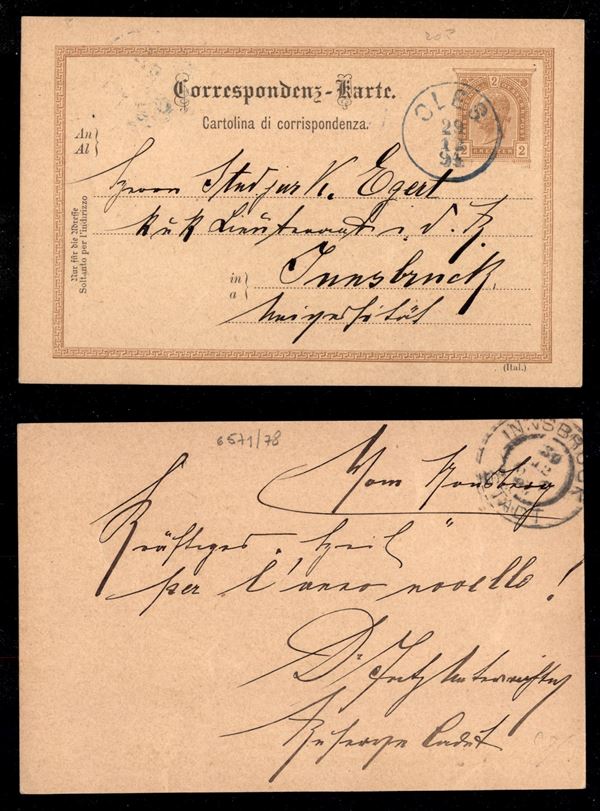 203
Correspondenz-Karte.
Cartolina di corrispondenza.
2 2
2 2
CLES
29
12
94
An
Al
Herrn Stud jur K. Egert
k u k Lieutenant i. d. R.
in
a
Innsbruck
Universität
Nur für die Adresse
Soltanto per l'indirizzo
(Ital.)
6571/78
INNSBRUCK
30
12
Vom Nonsberg
Kräftiges "Heil"
per l'anno novello!
Dr Fritz Unterrichter
Reserve Cadet